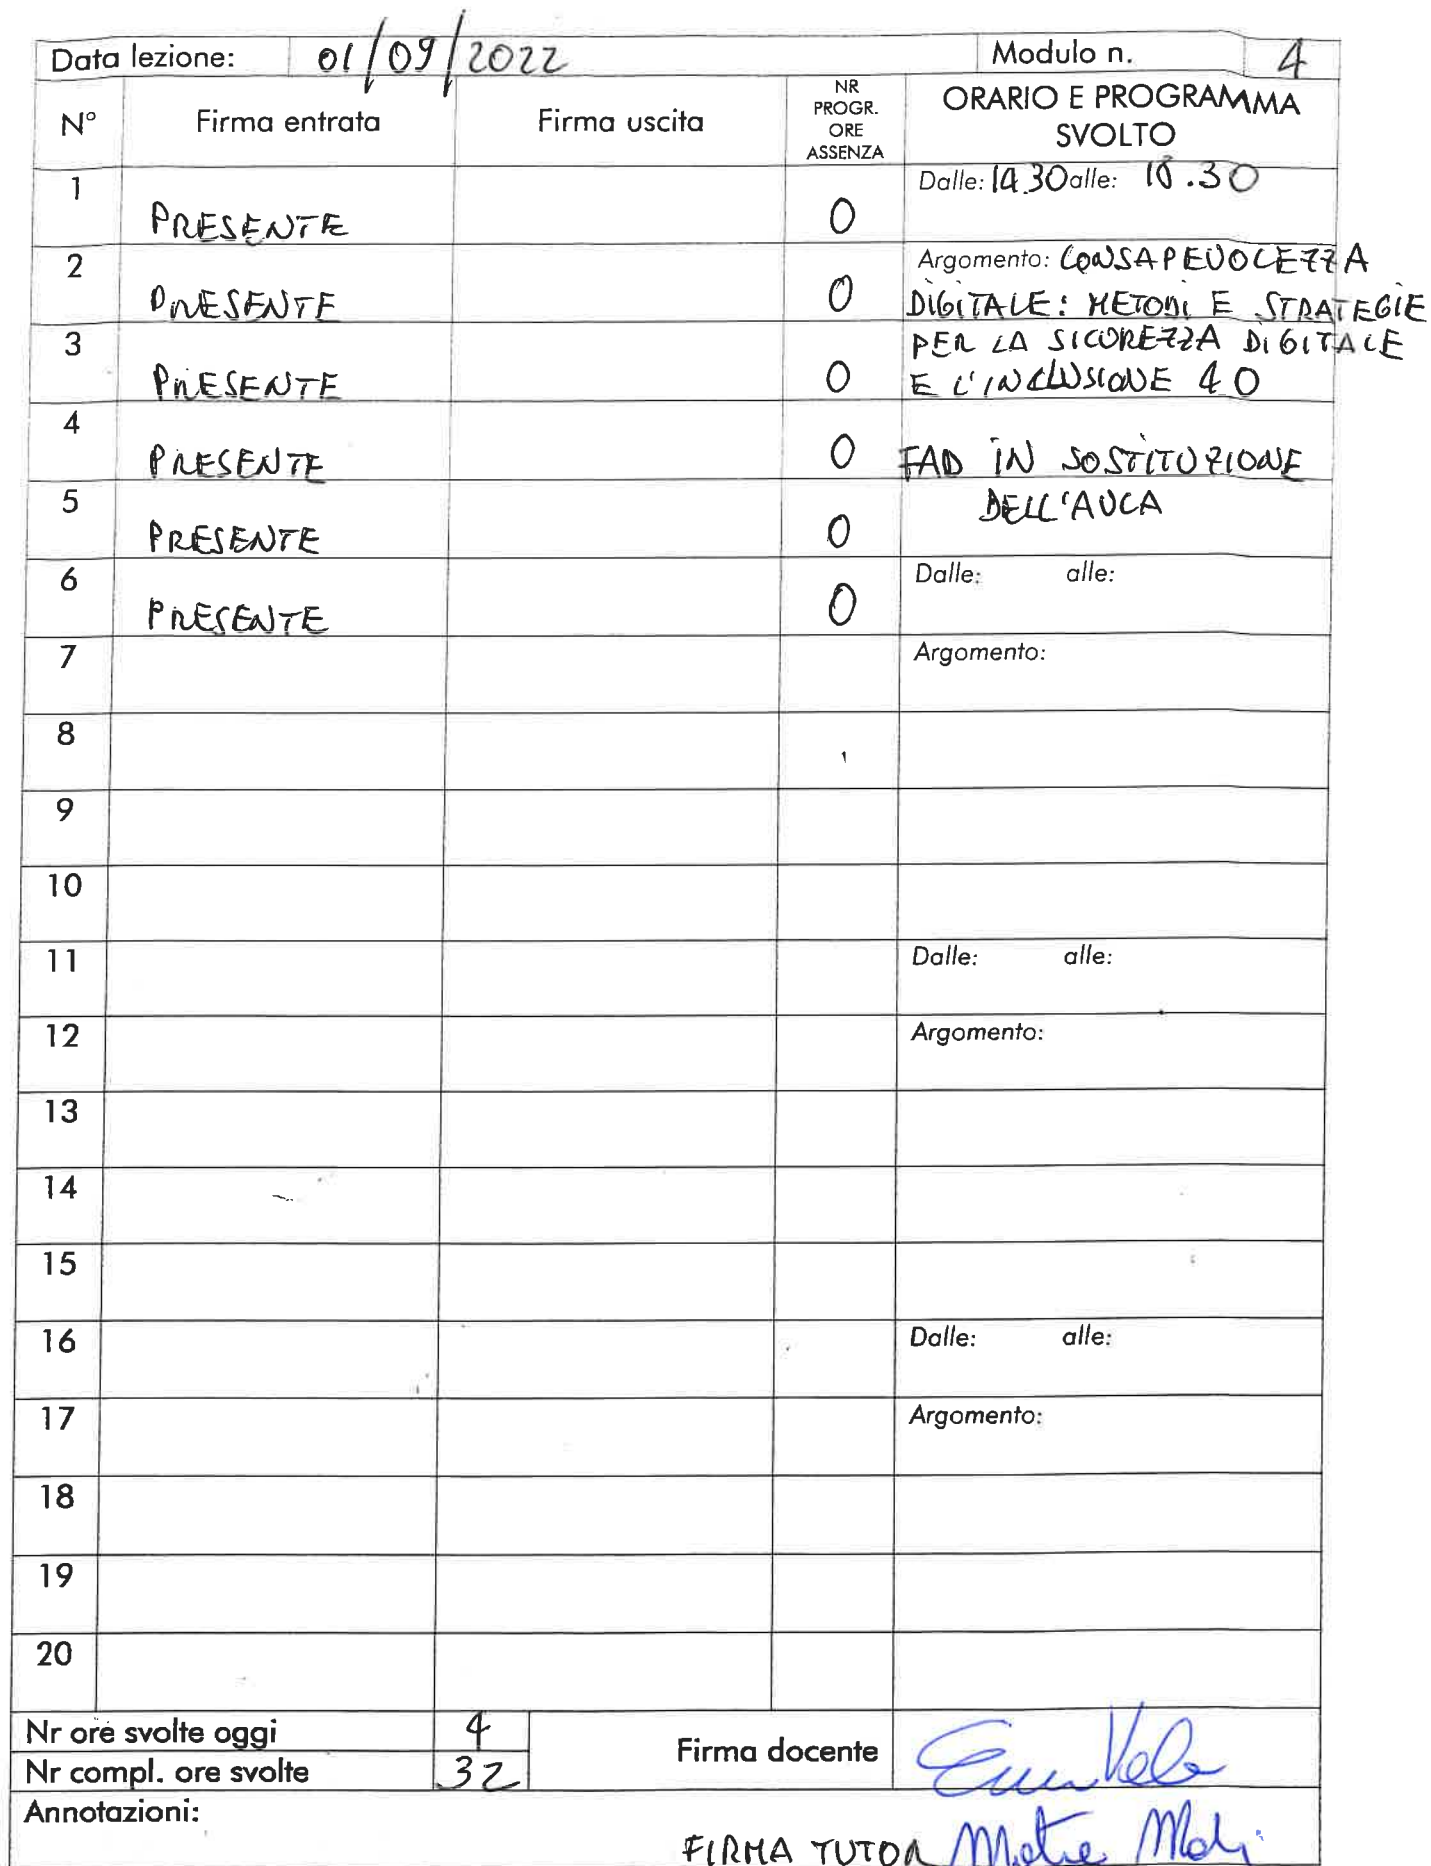 Data lezione: 01/09/2022 Modulo n. 4
N° Firma entrata Firma uscita NR PROGR. ORE ASSENZA ORARIO E PROGRAMMA SVOLTO
1 PRESENTE 0 Dalle: 14.30 alle: 18.30
2 PRESENTE 0 Argomento: CONSAPEVOLEZZA
DIGITALE: METODI E STRATEGIE
3 PRESENTE 0 PER LA SICUREZZA DIGITALE
E L'INCLUSIONE 4.0
4 PRESENTE 0 FAD IN SOSTITUZIONE
5 PRESENTE 0 DELL'AULA
6 PRESENTE 0 Dalle: alle:
7 Argomento:
8
9
10
11 Dalle: alle:
12 Argomento:
13
14
15
16 Dalle: alle:
17 Argomento:
18
19
20
Nr ore svolte oggi 4 Firma docente
Nr compl. ore svolte 32
Annotazioni:
FIRMA TUTOR